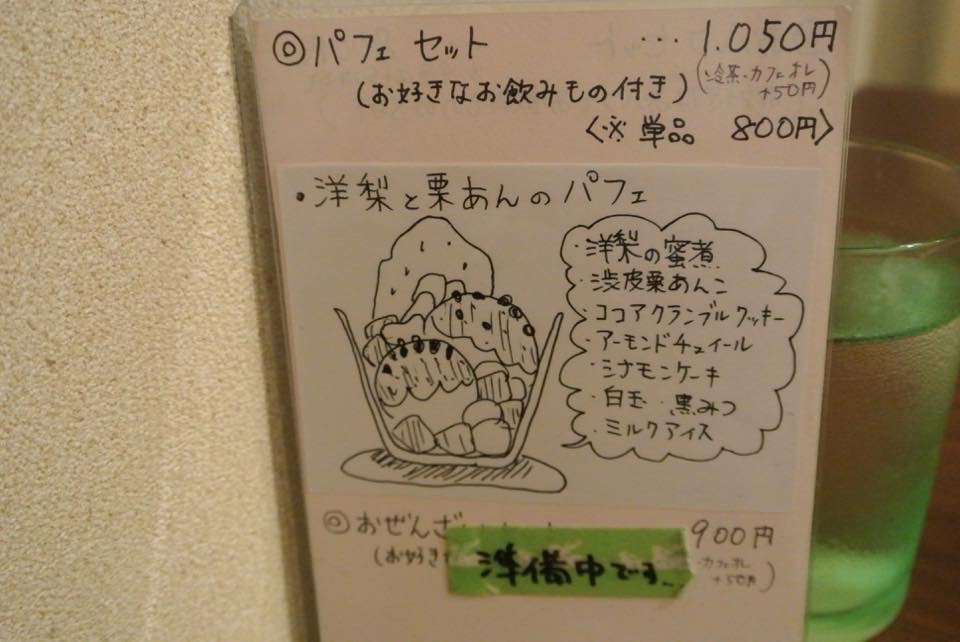 ◎パフェ セット ･･･ 1.050円
(お好きなお飲みもの付き) (冷茶・カフェオレ +50円)
〈※ 単品 800円〉
・洋梨と栗あんのパフェ
・洋梨の蜜煮
・渋皮栗あんこ
・ココアクランブルクッキー
・アーモンドチュイール
・シナモンケーキ
・白玉 ・黒みつ
・ミルクアイス
◎おぜんざい 900円
(お好き カフェオレ +50円)
準備中です